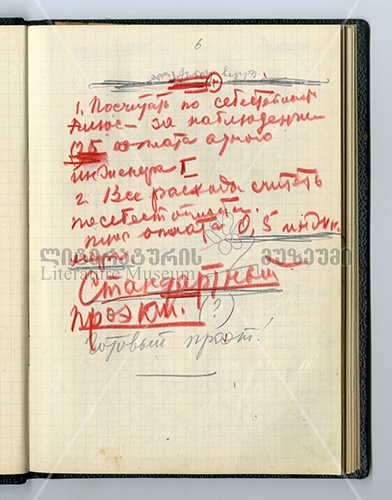 6
1. Посчитать по себестоимост
плюс – за наблюдение
оплата одного
инженера I
2. Все расходы считать
по себестоимости.
плюс оплата 0,5 инжен.
ლიტერატურის მუზეუმი
Literature Museum
Стандартный
проэкт. (?)
Готовый проэкт!